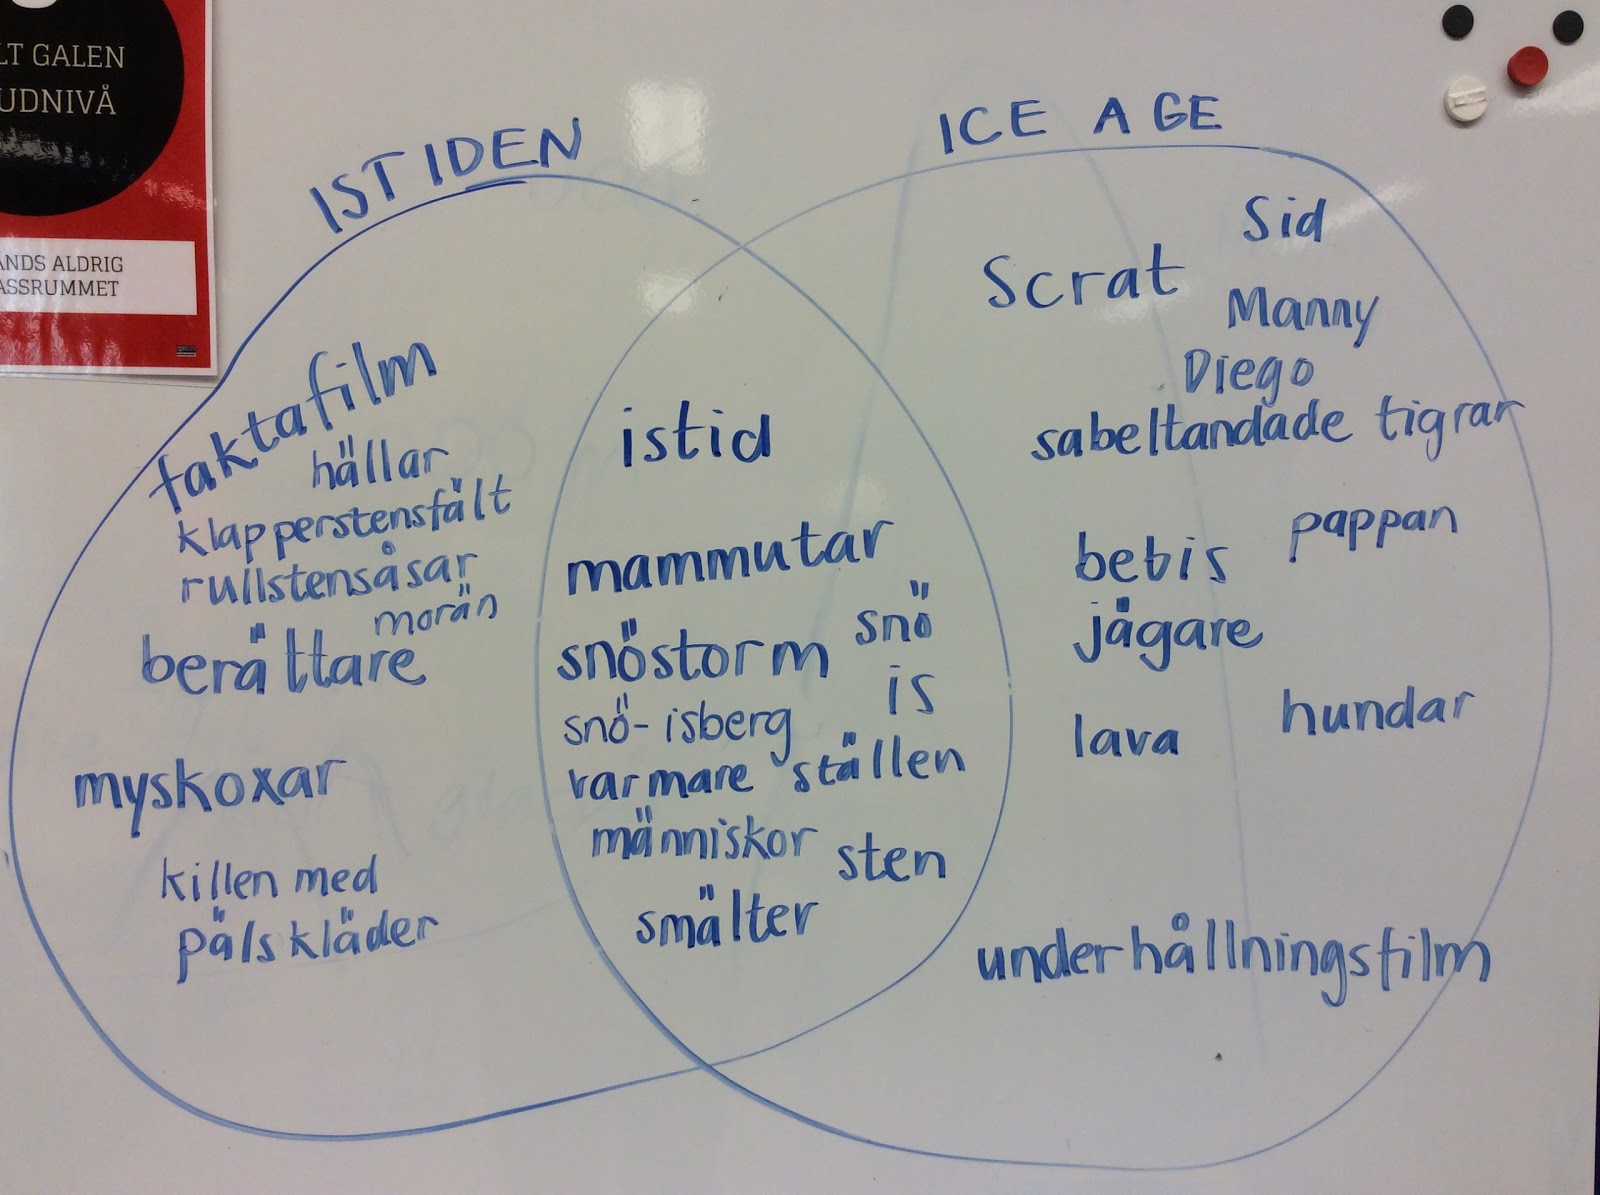 LT GALEN
UDNIVÅ
ANDS ALDRIG
ASSRUMMET
ISTIDEN
faktafilm
hällar
klapperstensfält
rullstensåsar
morän
berättare
myskoxar
killen med
pälskläder
istid
mammutar
snöstorm
snö
is
snö-isberg
varmare ställen
människor
sten
smälter
ICE AGE
Sid
Scrat
Manny
Diego
sabeltandade tigrar
pappan
bebis
jägare
hundar
lava
underhållningsfilm